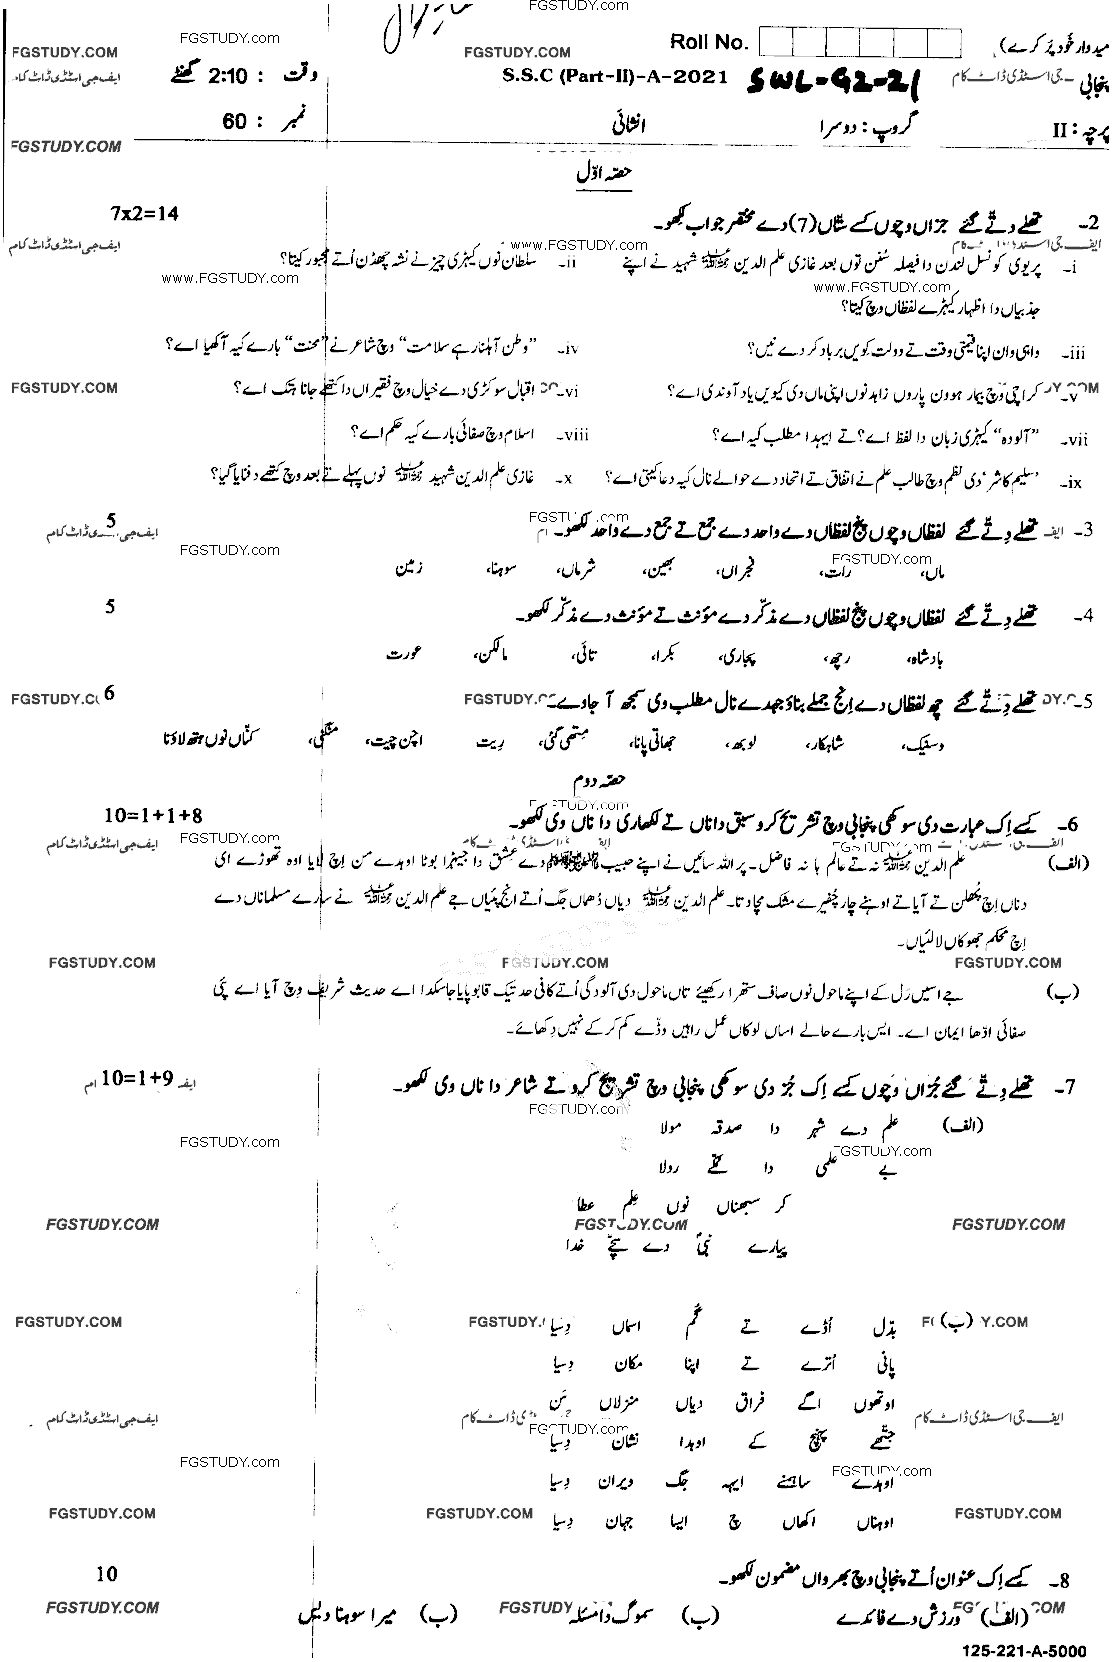 FGSTUDY.com
FGSTUDY.COM FGSTUDY.com FGSTUDY.COM Roll No. میدوار خود پُر کرے)
ایف جی اسٹڈی ڈاٹ کام وقت : 2:10 گھنٹے S.S.C (Part-II)-A-2021 SWL-G2-21 جی اسٹڈی ڈاٹ کام پنجابی
نمبر : 60 انشائی گروپ : دوسرا پرچہ : II
FGSTUDY.COM
حصہ اوّل
2- تھلے دِتّے گئے جزاں وچوں کسے ستّاں (7) دے مختصر جواب لکھو۔ 7x2=14
ایف جی اسٹڈی ڈاٹ کام www.FGSTUDY.com ایف جی اسٹڈی ڈاٹ کام
i- پریوی کونسل لندن دا فیصلہ سُنن توں بعد غازی علم الدین شہید نے اپنے ii- سلطان نوں کیہڑی چیز نے نشہ چھڈن اُتے مجبور کیتا؟
www.FGSTUDY.com www.FGSTUDY.com
جذبیاں دا اظہار کیہڑے لفظاں وچ کیتا؟
iii- واہی وان اپنا قیمتی وقت تے دولت کویں برباد کردے نیں؟ iv- ”وطن آہلنا رہے سلامت“ وچ شاعر نے ”محنت“ بارے کیہ آکھیا اے؟
FGSTUDY.COM v- کراچی وچ بیمار ہوون پاروں زاہد نوں اپنی ماں دی کیویں یاد آوندی اے؟ vi- اقبال سوکڑی دے خیال وچ فقیراں دا کتھے جانا ہتک اے؟
vii- ”آلودہ“ کیہڑی زبان دا لفظ اے؟ تے ایہدا مطلب کیہ اے؟ viii- اسلام وچ صفائی بارے کیہ حکم اے؟
ix- ’سلیم کاشر‘ دی نظم وچ طالب علم نے اتفاق تے اتحاد دے حوالے نال کیہ دعا کیتی اے؟ x- غازی علم الدین شہید نوں پہلے تے بعد وچ کتھے دفنایا گیا؟
FGSTUDY.com
3- تھلے دِتّے گئے لفظاں وچوں پنج لفظاں دے واحد دے جمع تے جمع دے واحد لکھو۔ 5
ایف جی اسٹڈی ڈاٹ کام FGSTUDY.com FGSTUDY.com
ماں، رات، فجراں، بھین، شرماں، سوہنا، زمین
4- تھلے دِتّے گئے لفظاں وچوں پنج لفظاں دے مذکّر دے مؤنث تے مؤنث دے مذکّر لکھو۔ 5
بادشاہ، رِچھ، پجاری، بکرا، تائی، مالکن، عورت
5- تھلے دِتّے گئے چھ لفظاں دے اِنج جملے بناؤ جہدے نال مطلب وی سمجھ آ جاوے۔ 6
دستک، شاہکار، لوبھ، جھاتی پانا، متھی گئی، ریت اچن چیت، منگنی، کنّاں نوں ہتھ لاؤنا
حصہ دوم
FGSTUDY.com
6- کسے اِک عبارت دی سوکھی پنجابی وچ تشریح کرو سبق دا ناں تے لکھاری دا ناں وی لکھو۔ 10=1+1+8
ایف جی اسٹڈی ڈاٹ کام FGSTUDY.com FGSTUDY.com
(الف) علم الدین نہ تے عالم ہا نہ فاضل۔ پر اللہ سائیں نے اپنے حبیب دے عشق دا جیہڑا بوٹا اوہدے من اِچ لایا اوہ تھوڑے ای
دناں اِچ پُھلن تے آیا تے اوہنے چار چُفیرے مشک مچا دتا۔ علم الدین دیاں دُھماں جگ اُتے انج پئیاں جے علم الدین نے سارے مسلماناں دے
اِچ محکم جھوکاں لا لئیاں۔
FGSTUDY.COM FGSTUDY.COM FGSTUDY.COM
(ب) جے اسیں رَل کے اپنے ماحول نوں صاف ستھرا رکھیئے تاں ماحول دی آلودگی اُتے کافی حد تیک قابو پایا جا سکدا اے حدیث شریف وچ آیا اے پئی
صفائی ادّھا ایمان اے۔ ایس بارے حالے اساں لوکاں عمل راہیں وڈّے کم کر کے نہیں دکھائے۔
7- تھلے دِتّے گئے جُزاں وچوں کسے اِک جُز دی سوکھی پنجابی وچ تشریح کرو تے شاعر دا ناں وی لکھو۔ 10=1+9
FGSTUDY.com
(الف) علم دے شہر دا صدقہ مولا
FGSTUDY.com FGSTUDY.com
بے علمی دا مُکّے رولا
کر سبھناں نوں علم عطا
FGSTUDY.COM FGSTUDY.COM FGSTUDY.COM
پیارے نبیؐ دے سچّے خدا
FGSTUDY.COM
(ب) بدّل اُڈے تے گُم اسماں دِسیا
پانی اُترے تے اپنا مکان دِسیا
اوتھوں اگے فراق دیاں منزلاں سَن
ایف جی اسٹڈی ڈاٹ کام ایف جی اسٹڈی ڈاٹ کام FGSTUDY.com
جتھے پہنچ کے اوہدا نشان دِسیا
FGSTUDY.com FGSTUDY.com
اوہدے ساہمنے ایہہ جگ ویران دِسیا
FGSTUDY.COM FGSTUDY.COM FGSTUDY.COM
اوہناں اکھاں چ ایسا جہان دِسیا
8- کسے اِک عنوان اُتے پنجابی وچ بھرواں مضمون لکھو۔ 10
FGSTUDY.COM (الف) ورزش دے فائدے (ب) سموگ دا مسئلہ (پ) میرا سوہنا دیس
125-221-A-5000